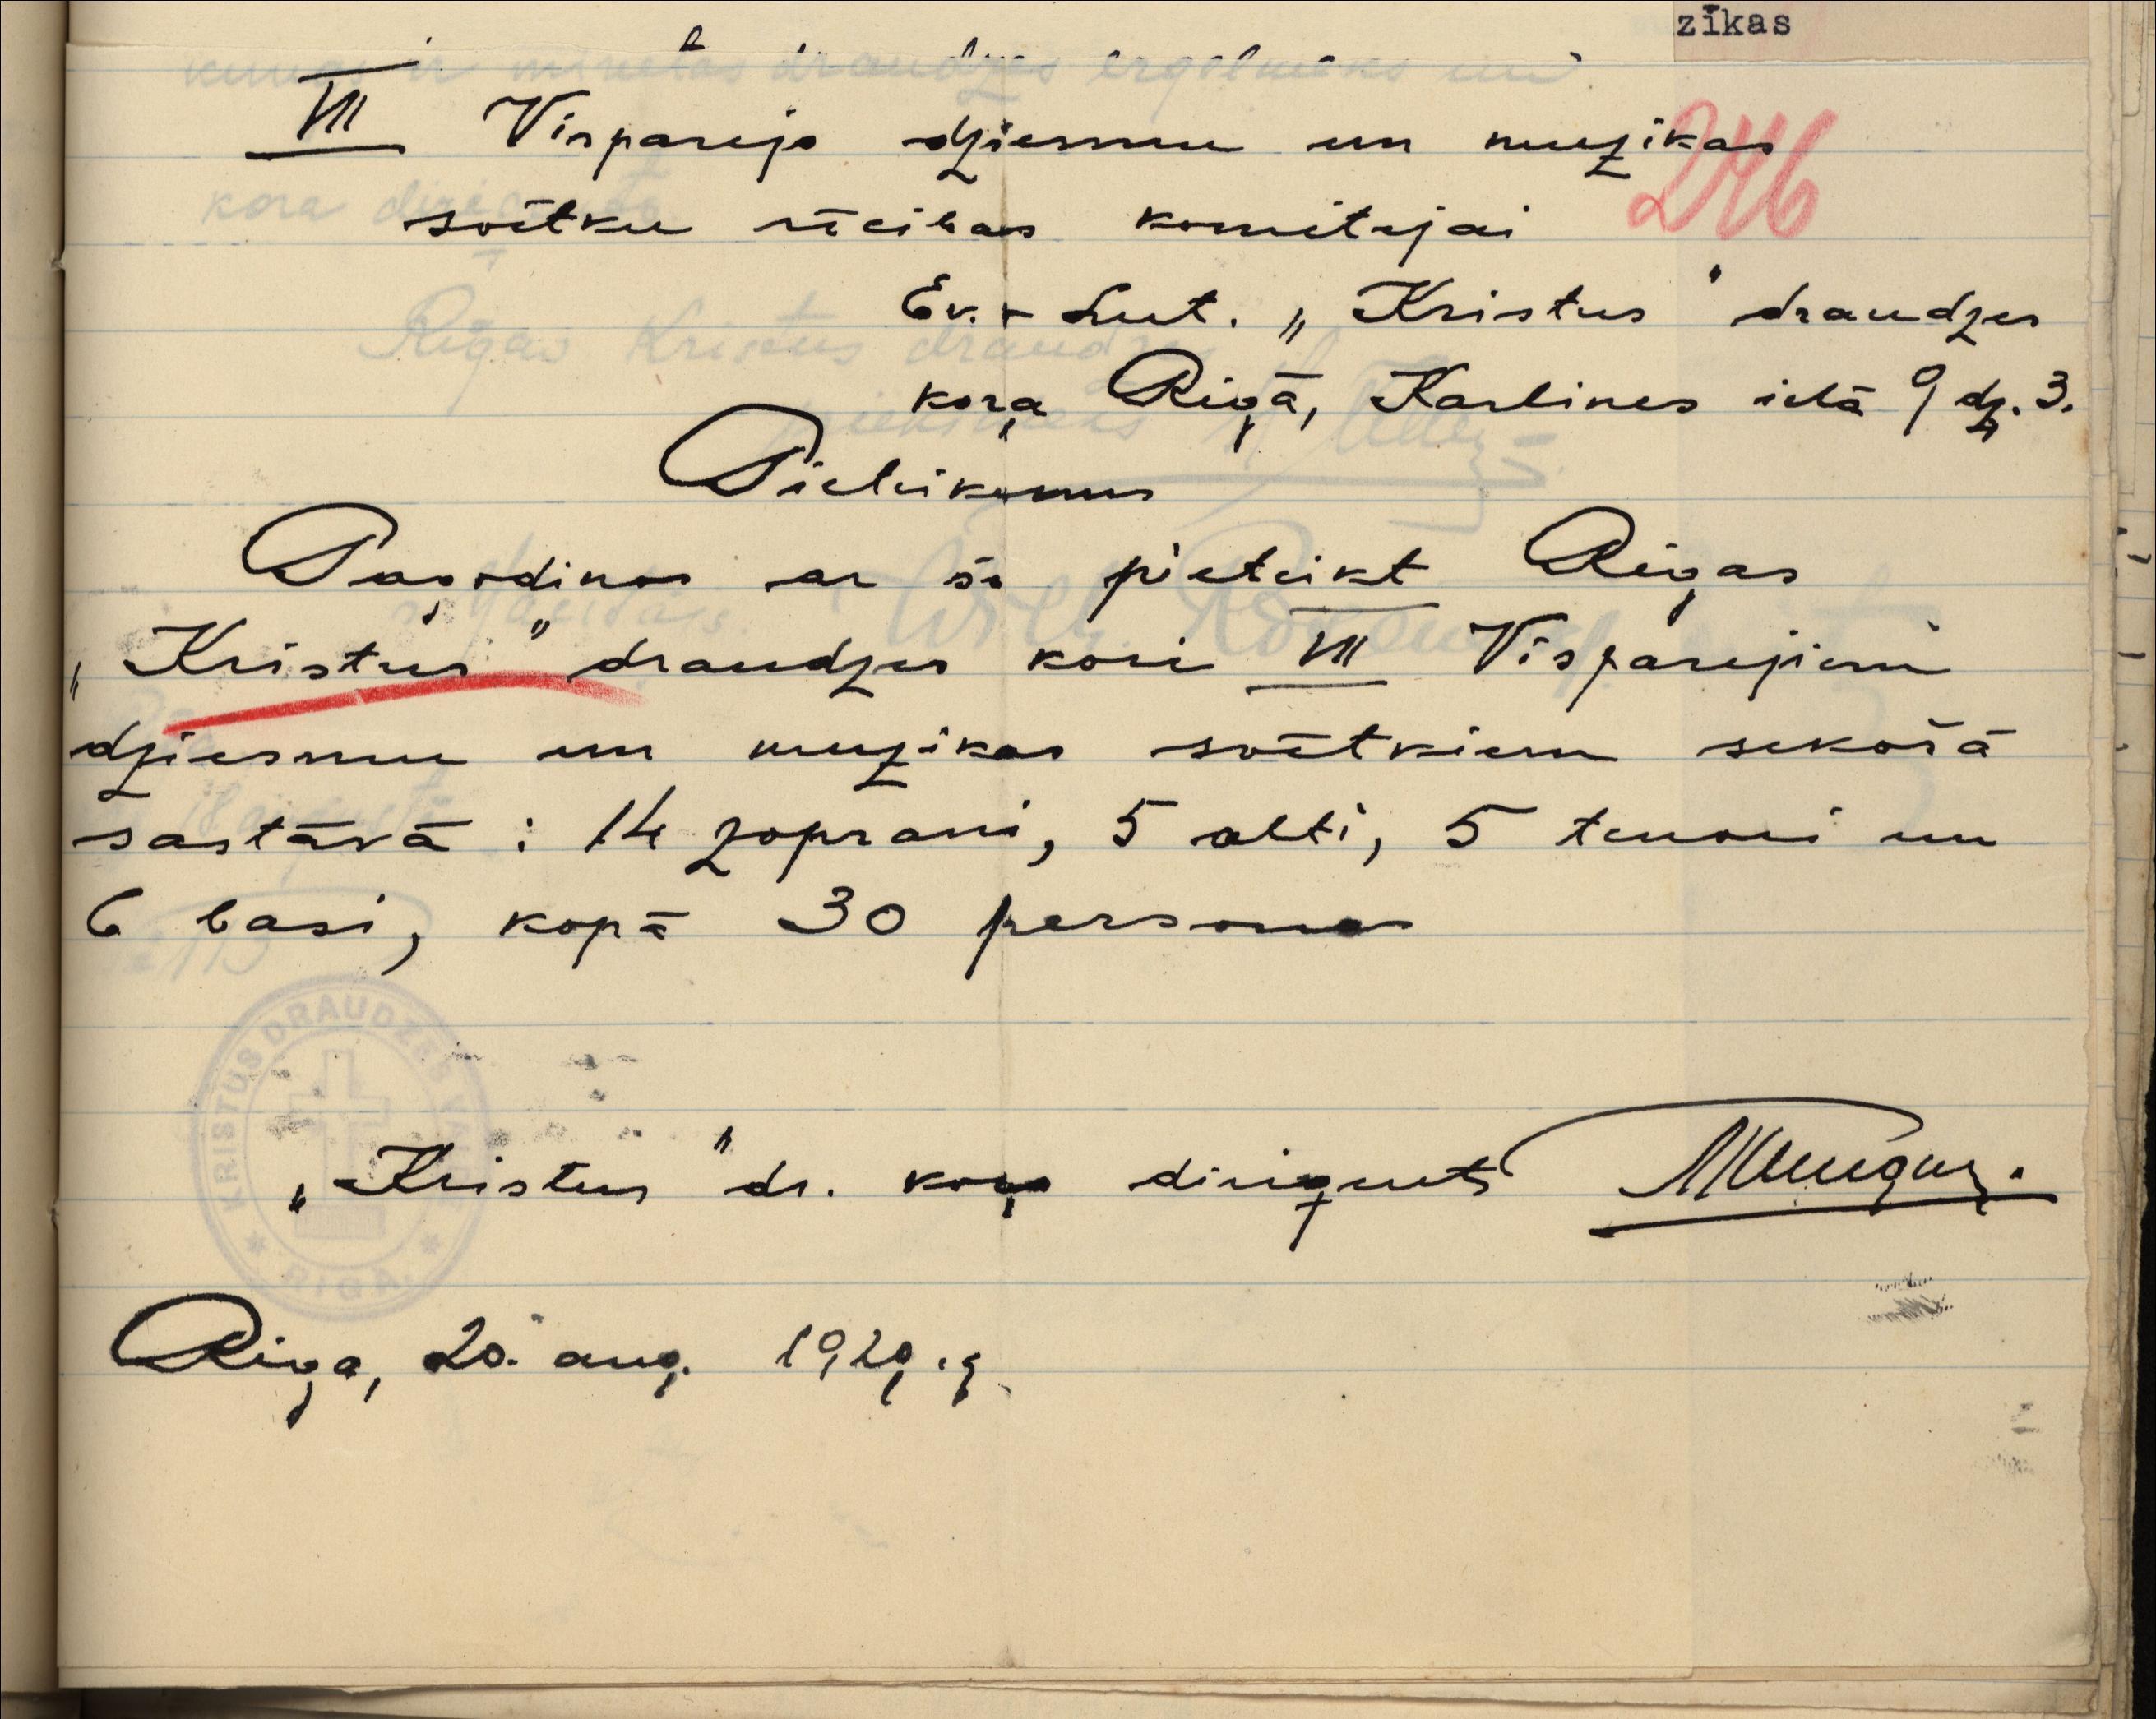 zīkas
VII Vispārejo dziesmu un muzikas
246
svētku rīcibas komitejai
Ev.-Lut. „Kristus" draudzes
koŗa Rīgā, Karlines ielā 9 dz. 3.
Pieteikums
Pagodinos ar šo pieteikt Rīgas
„Kristus" draudzes kori VII Vispārejiem
dziesmu un muzikas svētkiem sekošā
sastāvā: 14 zoprani, 5 alti, 5 tenori un
6 basi, kopā 30 personas
KRISTUS DRAUDZES
RIGA
„Kristus" dr. koŗa dirigents
Riga, 20. aug. 1929. g.